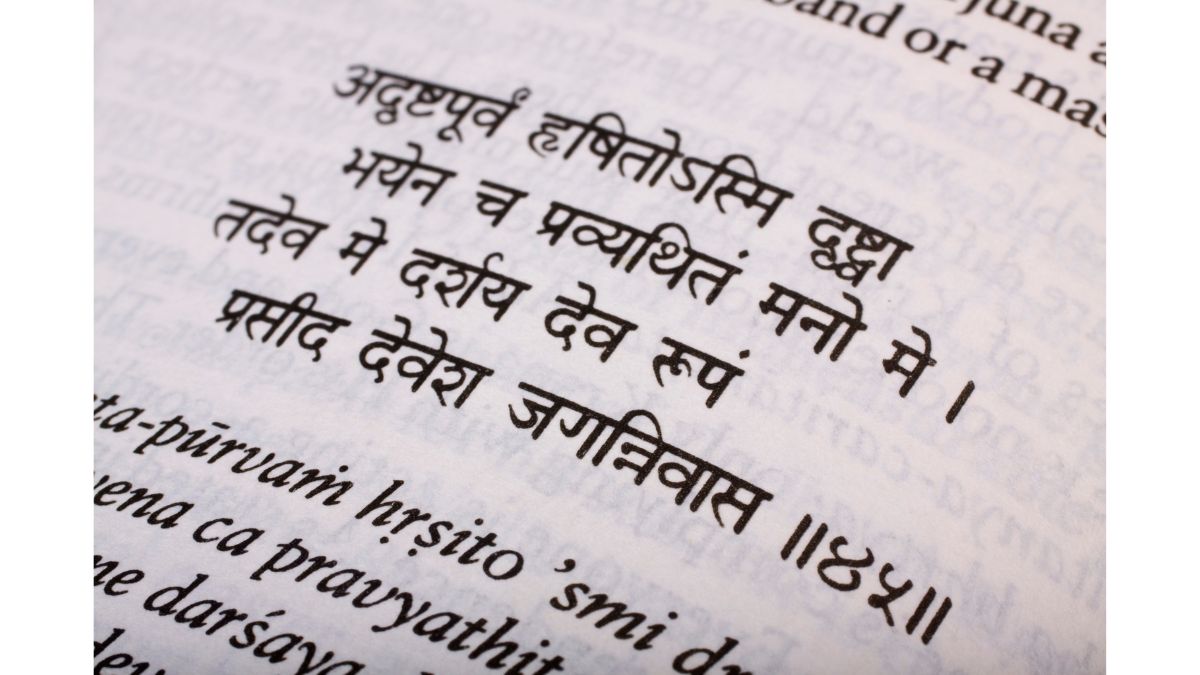 juna a
band or a mas
अदृष्टपूर्वं हृषितोऽस्मि दृष्ट्वा
भयेन च प्रव्यथितं मनो मे ।
तदेव मे दर्शय देव रूपं
प्रसीद देवेश जगन्निवास ॥४५॥
ta-pūrvaṁ hṛṣito ’smi dṛ
ena ca pravyathit
me darśaya
dev